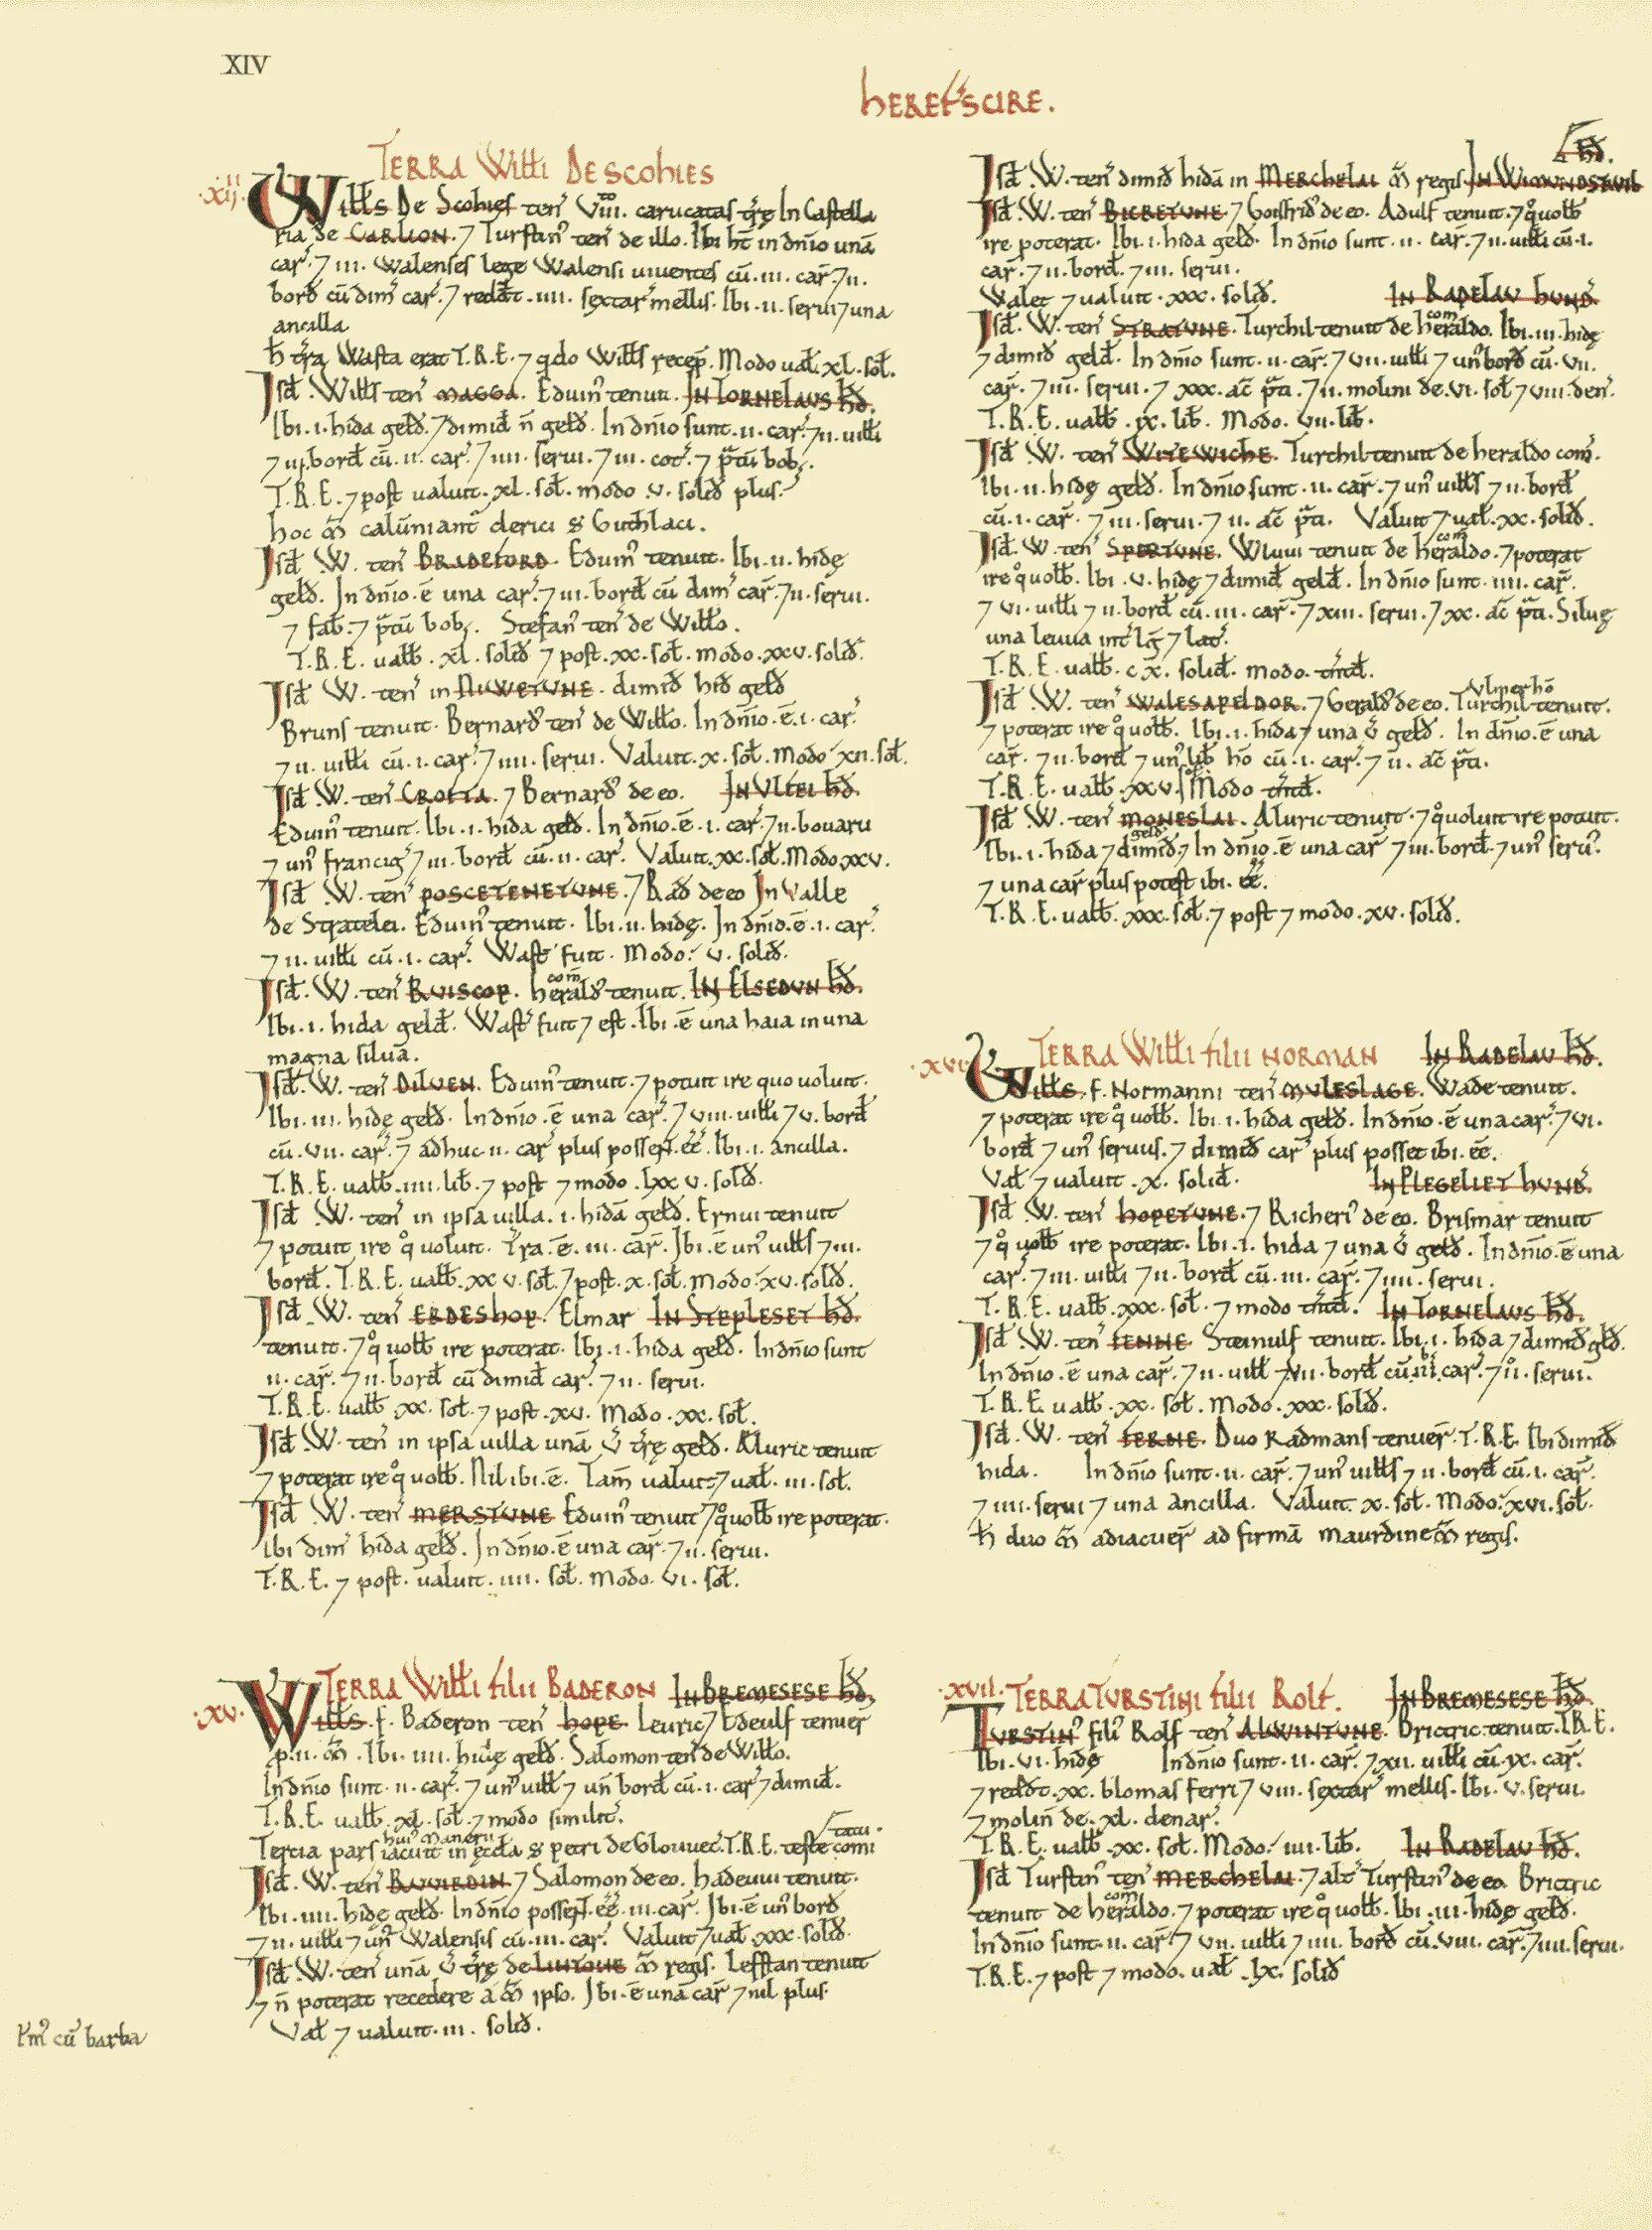 XIV
HEREF'SCIRE.
TERRA Willi DE SCOHIES
.XIIII. Willꝭs De Scohies ten̄ VIII. carucatas tr̄ę In Castella
ria de CARLION. ⁊ Turstin' ten' de illo. Ibi ht̄ in dn̄io unā
car'. ⁊ III. Walenses lege Walensi uiuentes cū. III. car'. ⁊ II.
bord cū dim' car'. ⁊ redd̄t. IIII. sextar' mellis. Ibi. II. serui ⁊ una
ancilla
H̄ tr̄a Wasta erat T.R.E. ⁊ qdo Willꝭs recep̄. Modo ual. XL. sol.
Isd. Willꝭs ten' MAGGA. Eduin' tenuit. IN TORNELAUS HD.
Ibi. I. hida geld. ⁊ dimid n̄ geld. In dn̄io sunt. II. car'. ⁊ II. uilli
⁊ III. bord cū. II. car'. ⁊ IIII. serui. ⁊ III. cot'. ⁊ p̄tū bob;.
T.R.E. ⁊ post ualuit. XL. sol. modo. V. solid plus.
hoc m̄ calūniant' clerici S Guthlaci.
Isd W. ten' BRADEFORD. Eduin' tenuit. Ibi. II. hidę
geld. In dn̄io. ē una car'. ⁊ III. bord cū dim' car'. ⁊ II. serui.
⁊ fab. ⁊ p̄tū bob;. Stefan' ten' de Willo.
T.R.E. ualb. XL. solid ⁊ post. XX. sol. modo. XXV. solid.
Isd W. ten' in NIWETUNE. dimid hid geld
Bruns tenuit. Bernard' ten' de Willo. In dn̄io. ē. I. car'.
⁊ II. uilli cū. I. car'. ⁊ IIII. serui. Valuit. X. sol. Modo XII. sol.
Isd. W. ten' CROFTA. ⁊ Bernard' de eo. IN ULFEI HD.
Eduin' tenuit. Ibi. I. hida geld. In dn̄io. ē. I. car'. ⁊ II. bouarii
⁊ un' francig' ⁊ III. bord cū. II. car'. Valuit. XX. sol. Modo XXV.
Isd W. ten' POSCETENETUNE. ⁊ Rad de eo In Valle
de Stratelei. Eduin' tenuit. Ibi. II. hidę. In dn̄io. ē. I. car'.
⁊ II. uilli cū. I. car'. Wast' fuit. Modo. V. solid.
Isd. W. ten' RUISCOP. herald' com̄ tenuit. IN ELSEDUN HD.
Ibi. I. hida geld. Wast' fuit ⁊ est. Ibi. ē una haia in una
magna silua.
Isd. W. ten' DILUEN. Eduin' tenuit. ⁊ potuit ire quo uoluit.
Ibi. III. hidę geld. In dn̄io. ē una car'. ⁊ VIII. uilli ⁊ V. bord
cū. VII. car'. ⁊ adhuc. II. car' plus possent. ēē. Ibi. I. ancilla.
T.R.E. ualb. IIII. lib. ⁊ post ⁊ modo. LXXV. solid.
Isd W. ten' in ipsa uilla. I. hidā geld. Ernui tenuit
⁊ potuit ire q° uoluit. Tr̄a. ē. III. car̄. Ibi. ē un' uillꝭs ⁊ III.
bord. T.R.E. ualb. XXV. sol. ⁊ post. X. sol. Modo. XV. solid.
Isd. W. ten' ERDESHOP. Elmar IN STEPLESET HD.
tenuit. ⁊ q° uolb ire poterat. Ibi. I. hida geld. In dn̄io sunt
II. car̄. ⁊ II. bord cū dimid car'. ⁊ II. serui.
T.R.E. ualb XX. sol. ⁊ post. XV. Modo. XX. sol.
Isd. W. ten' in ipsa uilla unā V' tr̄ę geld. Aluric tenuit
⁊ poterat ire q° uolb. Nil ibi. ē. Tam̄ ualuit ⁊ ual. III. sol.
Isd W. ten' MERSTUNE Eduin' tenuit ⁊ q° uolb ire poterat.
Ibi dim' hida geld. In dn̄io. ē una car̄. ⁊ II. serui.
T.R.E. ⁊ post. ualuit. IIII. sol. Modo. VI. sol.
TERRA Willi filii BADERON IN BREMESESE HD,
.XV. Willꝭs. f. Baderon ten' HOPE. Leuric ⁊ Edeulf tenuer̄
p. II. m̄. Ibi. IIII. hidę geld. Salomon ten' de Willo.
In dn̄io sunt. II. car'. ⁊ un' uill ⁊ un' bord cū. I. car' ⁊ dimid.
T.R.E. ualb. XL. sol. ⁊ modo similit'.
Tercia pars hui' manerii iacuit in ęccła S petri de Glouuec'. T.R.E. teste comitatu.
Isd. W. ten' RUUIRDIN. ⁊ Salomon de eo. hadeuui tenuit.
Ibi. IIII. hidę geld. In dn̄io possent. ēē. III. car̄. Ibi. ē un' bord
⁊ II. uilli ⁊ un' Walensis cū. III. car'. Valuit ⁊ ual. XXX. solid.
Isd. W. ten' unā V' tr̄ę de LINTONE m̄ regis. Lefstan tenuit
⁊ n̄ poterat recedere a m̄ ipso. Ibi. ē una car̄ ⁊ nil plus.
Val ⁊ ualuit. III. solid.
cū barba
Isd. W. ten' dimid hidā in MERCHELAI m̄ regis. IN WIMUNDSTRUIL HD.
Isd. W. ten' BICRETUNE. ⁊ Goisfrid' de eo. Adulf tenuit. ⁊ q° uolb
ire poterat. Ibi. I. hida geld. In dn̄io sunt. II. car̄. ⁊ II. uilli cū. I.
car'. ⁊ II. bord. ⁊ III. serui.
Valet ⁊ ualuit. XXX. solid. IN RADELAU HUND.
Isd. W. ten' STRATUNE. Turchil tenuit de heraldo com. Ibi. III. hidę
⁊ dimid geld. In dn̄io sunt. II. car̄. ⁊ VII. uilli ⁊ un' bord cū. VII.
car̄. ⁊ III. serui. ⁊ XXX. ac̄ p̄ti. ⁊ II. molini de. VI. sol ⁊ VIII. den'.
T.R.E. ualb. IX. lib. Modo. VII. lib.
Isd W. ten' WITEWICHE. Turchil tenuit de heraldo com̄.
Ibi. II. hidę geld. In dn̄io sunt. II. car̄. ⁊ un' uillꝭs ⁊ II. bord
cū. I. car̄. ⁊ III. serui. ⁊ II. ac̄ p̄ti. Valuit ⁊ ual. XX. solid.
Isd. W. ten' SPERTUNE. Wluui tenuit de heraldo com̄. ⁊ poterat
ire q° uolb. Ibi. V. hidę ⁊ dimid geld. In dn̄io sunt. IIII. car̄.
⁊ VI. uilli ⁊ II. bord cū. III. car̄. ⁊ XIII. serui. ⁊ XX. ac̄ p̄ti. Siluę
una leuua int' lḡ ⁊ lat'.
T.R.E. ualb. C X. solid. modo. thđ.
Isd W. ten' WALESAPELDOR. ⁊ Gerald' de eo. Turchil Vlmer hō tenuit.
⁊ poterat ire q° uolb. Ibi. I. hida ⁊ una V' geld. In dn̄io. ē una
car̄. ⁊ II. bord ⁊ un' lib hō cū. I. car'. ⁊ II. ac̄ p̄ti.
T.R.E. ualb. XXV. sol. Modo thđ.
Isd W. ten' MONESLAI. Aluric tenuit. ⁊ q° uoluit ire potuit.
Ibi. I. hida ⁊ dimid geld. ⁊ In dn̄io. ē una car̄ ⁊ III. bord. ⁊ un' seru'.
⁊ una car̄ plus potest ibi. ēē.
T.R.E. ualb. XXX. sol. ⁊ post ⁊ modo. XV. solid.
TERRA Willi filii NORMAN IN RADELAU HD.
.XVI. Willꝭs. f. Normanni ten' MULESLAGE. Wade tenuit.
⁊ poterat ire q° uolb. Ibi. I. hida geld. In dn̄io. ē una car̄. ⁊ VI.
bord ⁊ un' seruus. ⁊ dimid car' plus posset ibi. ēē.
Val ⁊ ualuit. X. solid. IN PLEGELIET HUND.
Isd W. ten' HOPETUNE. ⁊ Richeri' de eo. Brismar tenuit
⁊ q° uolb ire poterat. Ibi. I. hida ⁊ una V' geld. In dn̄io. ē una
car'. ⁊ III. uilli ⁊ II. bord cū. III. car̄. ⁊ IIII. serui.
T.R.E. ualb. XXX. sol. ⁊ modo thđ. IN TORNELAUS HD.
Isd. W. ten' FENNE Steinulf tenuit. Ibi. I. hida ⁊ dimid geld.
In dn̄io. ē una car̄. ⁊ II. uill ⁊ VII. bord cū. III. car'. ⁊ II. serui.
T.R.E. ualb. XX. sol. Modo. XXX. solid.
Isd. W. ten' FERNE. Duo Radmans tenuer̄. T.R.E. Ibi dimid
hida. In dn̄io sunt. II. car̄. ⁊ un' uillꝭs ⁊ II. bord cū. I. car̄.
⁊ IIII. serui ⁊ una ancilla. Valuit. X. sol. Modo. XVI. sol.
H̄ duo m̄ adiacuer̄ ad firmā maurdine m̄ regis.
.XVII. TERRA TURSTINI filii Rolf. IN BREMESESE HD
TURSTIN' fili' Rolf ten' ALWINTUNE. Brictric tenuit. T.R.E.
Ibi. VI. hidę In dn̄io sunt. II. car̄. ⁊ XII. uilli cū. IX. car̄.
⁊ redd̄t. XX. blomas ferri ⁊ VIII. sextar' mellis. Ibi. V. serui.
⁊ molin̄ de. XL. denar'.
T.R.E. ualb. XX. sol. Modo. IIII. lib. IN RADELAU HD.
Isd Turstin' ten' MERCHELAI. ⁊ alt' Turstin' de eo. Brictric
tenuit de heraldo com. ⁊ poterat ire q° uolb. Ibi. III. hidę geld.
In dn̄io sunt. II. car̄. ⁊ VII. uilli ⁊ IIII. bord cū. VIII. car̄. ⁊ IIII. serui.
T.R.E. ⁊ post ⁊ modo. ual. LX. solid